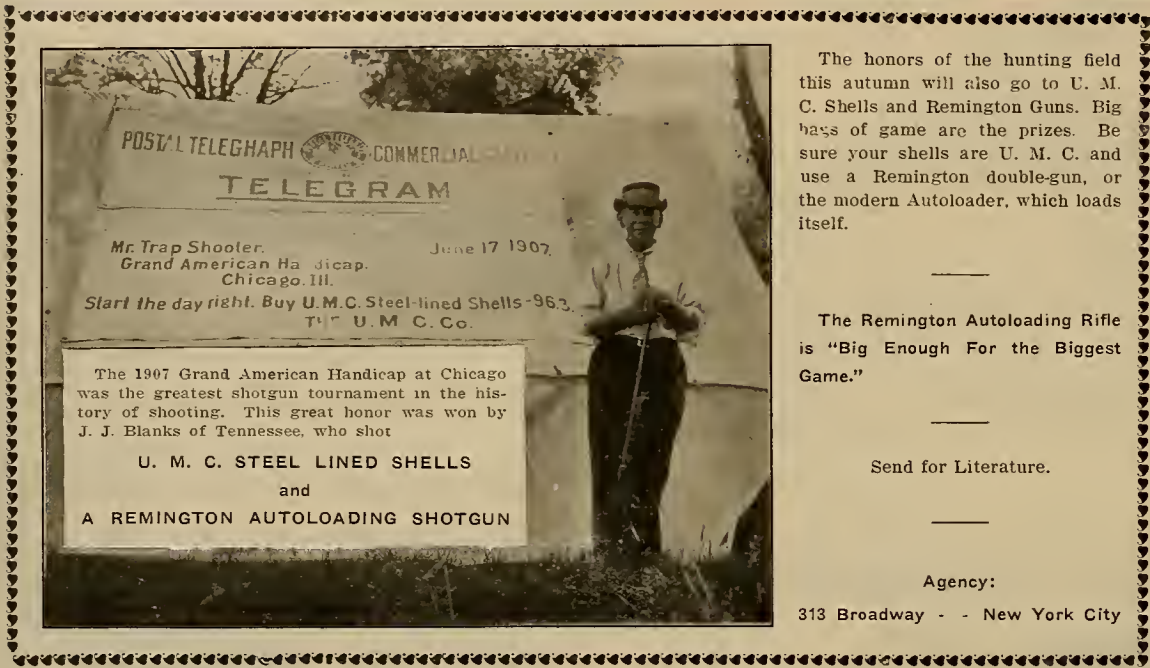 POSTAL TELEGHAPH COMMERCIAL
TELEGRAM
Mr. Trap Shooter. June 17 1907.
Grand American Ha dicap.
Chicago. Ill.
Start the day right. Buy U.M.C. Steel-lined Shells-963.
U. M C. Co.
The 1907 Grand American Handicap at Chicago
was the greatest shotgun tournament in the his-
tory of shooting. This great honor was won by
J. J. Blanks of Tennessee, who shot
U. M. C. STEEL LINED SHELLS
and
A REMINGTON AUTOLOADING SHOTGUN
The honors of the hunting field
this autumn will also go to U. M.
C. Shells and Remington Guns. Big
bags of game are the prizes. Be
sure your shells are U. M. C. and
use a Remington double-gun, or
the modern Autoloader, which loads
itself.
The Remington Autoloading Rifle
is "Big Enough For the Biggest
Game."
Send for Literature.
Agency:
313 Broadway - - New York City